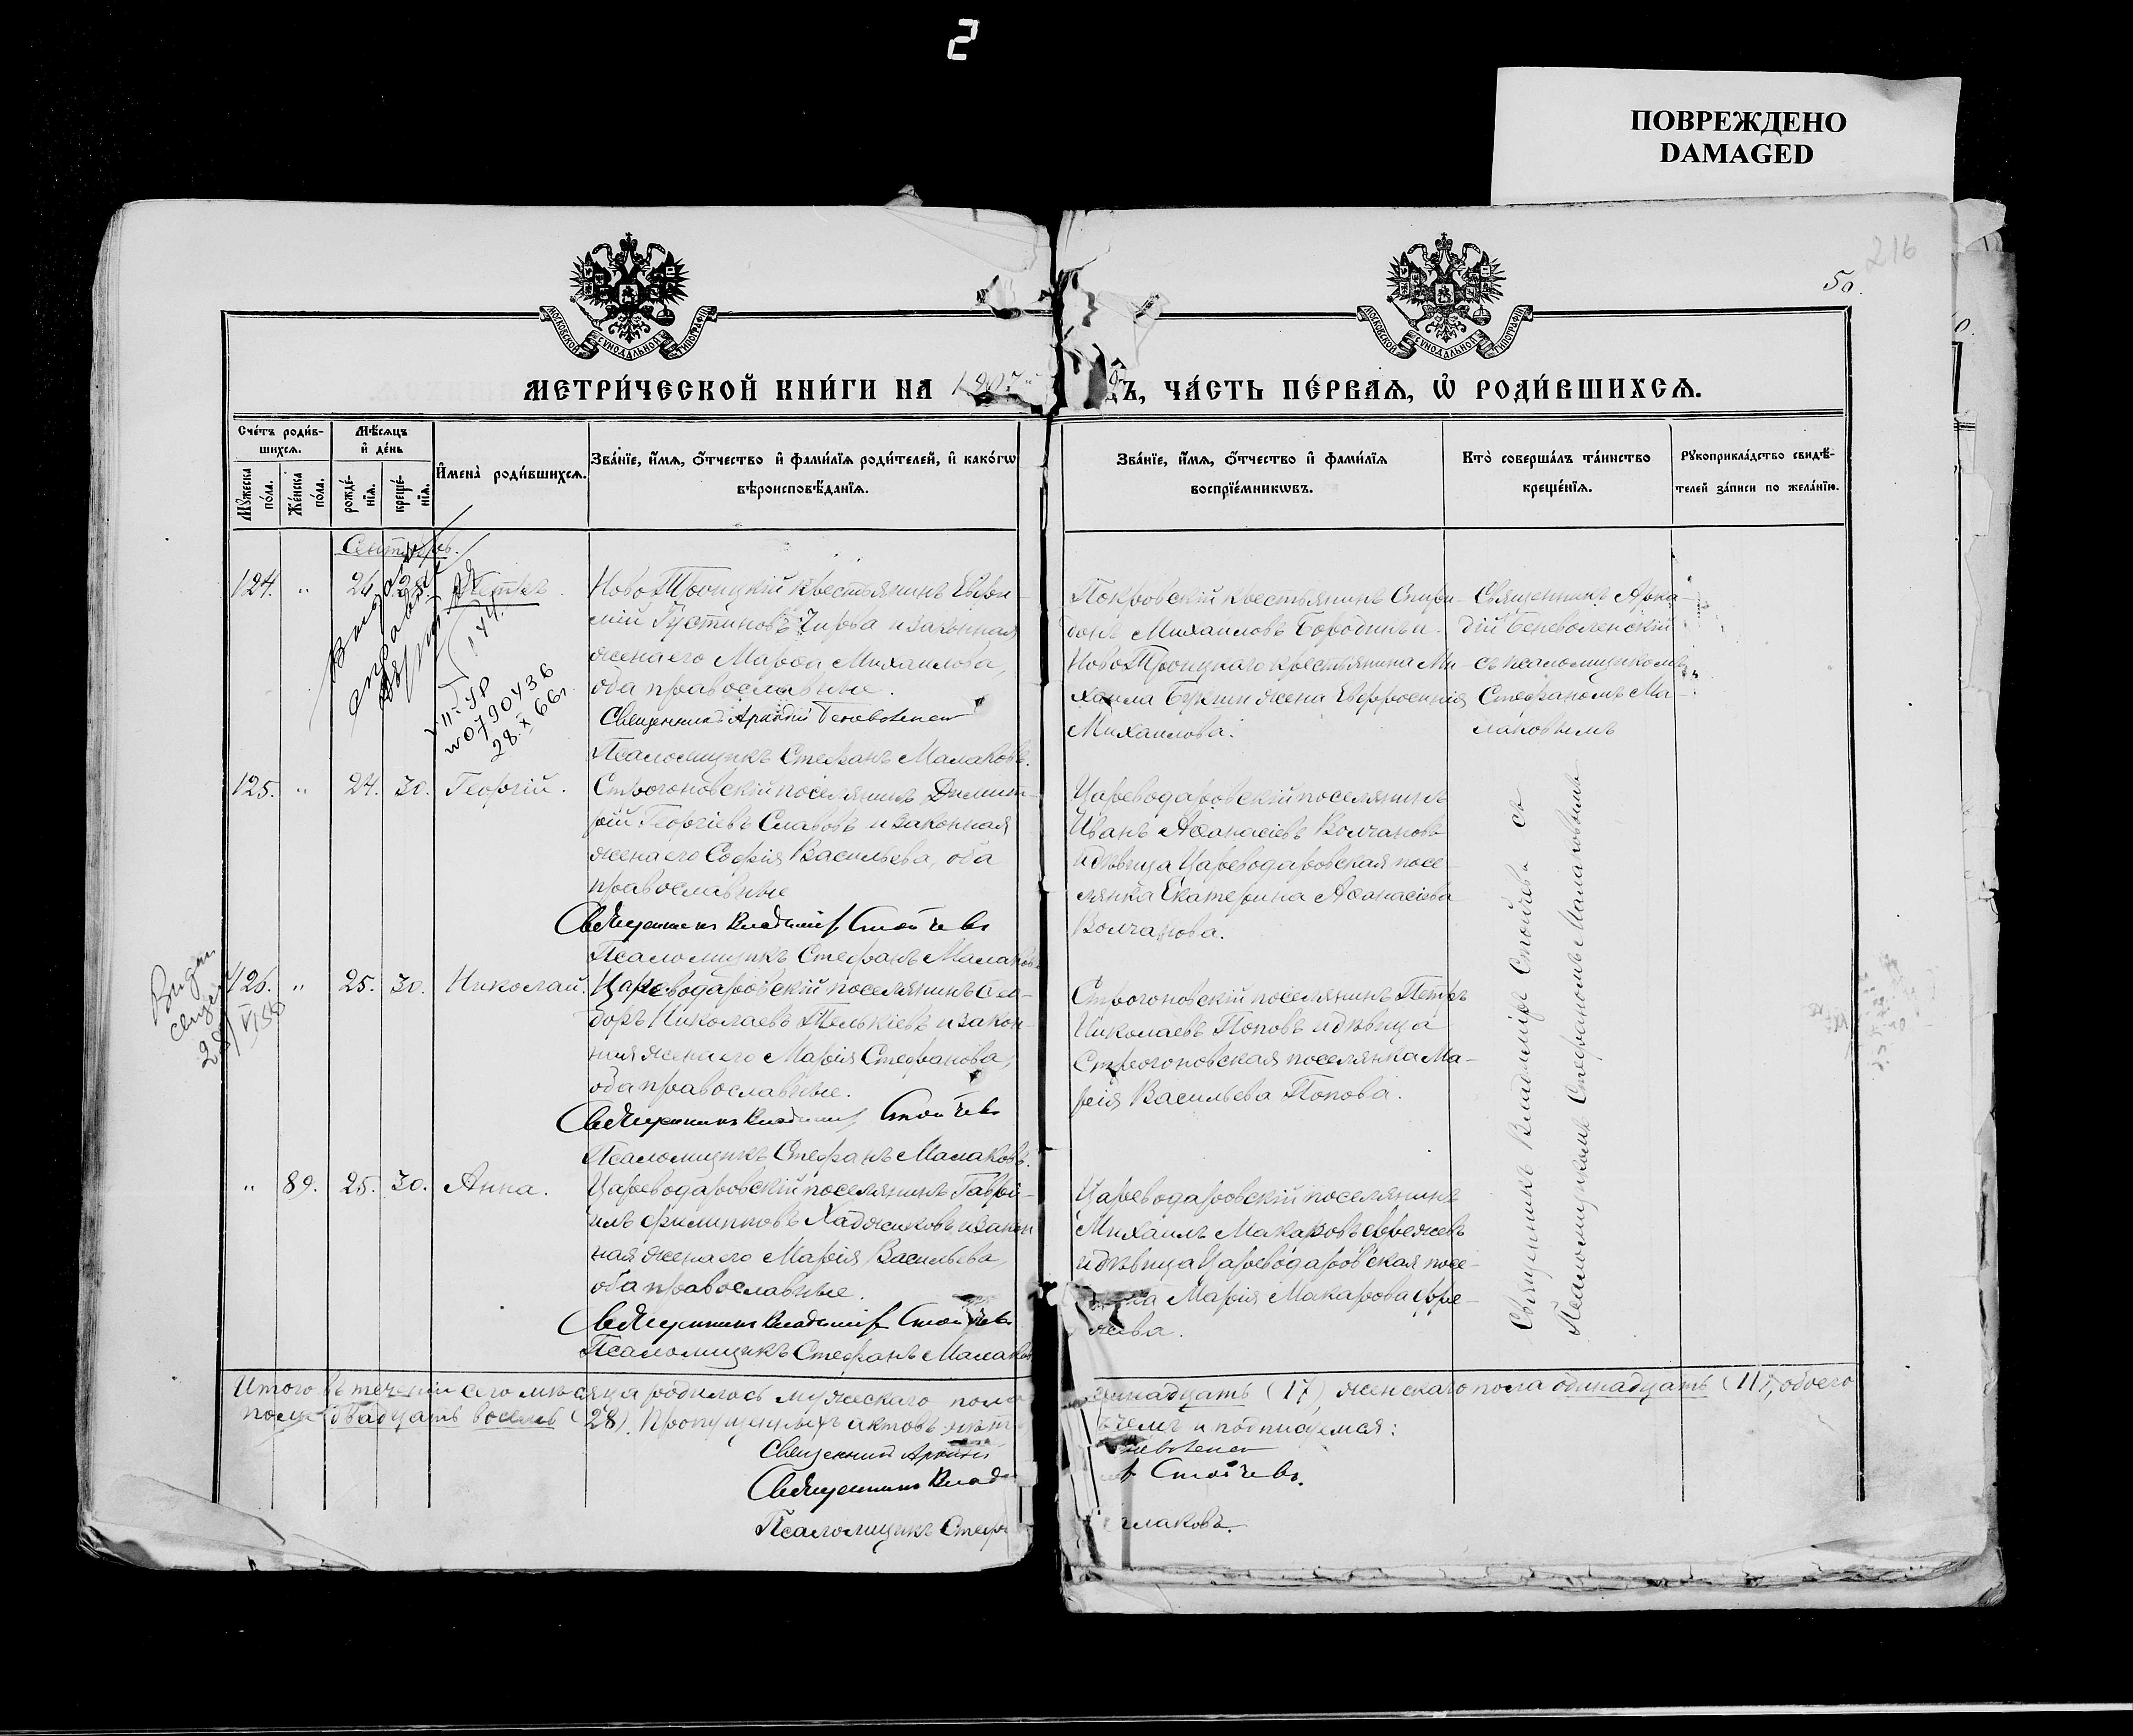 2
ПОВРЕЖДЕНО
DAMAGED
216
50.
МОСКОВСКОЙ СѴНОДАЛЬНОЙ ТИПОГРАФІИ
МОСКОВСКОЙ СѴНОДАЛЬНОЙ ТИПОГРАФІИ
МЕТРИ́ЧЕСКОЙ КНИ́ГИ НА 1907
Ъ, ЧА́СТЬ ПЕ́РВАѦ, Ѡ҆ РОДИ́ВШИХСѦ.
Сче́тъ роди́в-
шихсѧ.
Мꙋ́жеска по́ла.
Же́нска по́ла.
Мѣ́сѧцъ
и҆ де́нь
рожде́-нїѧ.
креще́-нїѧ.
И҆мена̀ роди́вшихсѧ.
Зва́нїе, и҆́мѧ, ѻ҆́тчество и҆ фами́лїѧ роди́телей, и҆ како́гѡ
вѣроисповѣ́данїѧ.
Зва́нїе, и҆́мѧ, ѻ҆́тчество и҆ фами́лїѧ
воспрїе́мникѡвъ.
Кто̀ соверша́лъ та́инство
креще́нїѧ.
Рꙋкоприкла́дство свидѣ́-
телей за́писи по жела́нїю.
Сентябрь.
124. " 26. 28. Петръ.
Ново Троицкій крестьянинъ Евфи-
мій Густиновъ Чирва и законная
жена его Марфа Михаилова,
оба православные.
Священникъ Аркадій Беневоленск
Псаломщикъ Стефанъ Малаковъ.
Покровскій крестьянинъ Спири-
донъ Михаиловъ Бородинъ и
Ново Троицкаго крестьянина Ми-
хаила жена Евфросинія
Михаилова.
Священникъ Арка-
дій Беневоленскій
съ псаломщикомъ
Стефаномъ Ма-
лаковымъ
28.X 66г
125. " 24. 30. Георгій.
Строгоновскій поселянинъ Димит-
рій Георгіевъ Славовъ и законная
жена его Софія Васильева, оба
православные
Священникъ Владиміръ Стойчевъ
Псаломщикъ Стефанъ Малаковъ
Цареводаровскій поселянинъ
Иванъ Аѳанасіевъ Волчановъ
и дѣвица Цареводаровская посе-
лянка Екатерина Аѳанасіева
Волчанова.
126. " 25. 30. Николай.
Цареводаровскій поселянинъ Ѳео-
доръ Николаевъ и закон-
ная жена его Марія Стефанова,
оба православные.
Священникъ Владиміръ Стойчевъ
Псаломщикъ Стефанъ Малаковъ.
Строгоновскій поселянинъ Петръ
Николаевъ Поповъ и дѣвица
Строгоновская поселянка Ма-
рія Васильева Попова.
" 89. 25. 30. Анна.
Цареводаровскій поселянинъ Гаврі-
илъ Филипповъ Хаджиковъ и закон
ная жена его Марія Васильева,
оба православные.
Священникъ Владиміръ Стойчевъ
Псаломщикъ Стефанъ Малаковъ
Цареводаровскій поселянинъ
Михаилъ Макаровъ
и дѣвица Цареводаровская посе-
ка Марія Макарова
Священникъ Владиміръ Стойчевъ съ
Псаломщикомъ Стефаномъ Малаковымъ
Итого въ теченіи сего мѣсяца родилось мужескаго пола
надцать (17), женскаго пола одинадцать (11), обоего
пола двадцать восемь (28). Пропущенныхъ актовъ нѣтъ
чемъ и подписуемся:
Священникъ Аркадій
Священникъ Влад
Стойчевъ.
Псаломщикъ Стефа
лаковъ.